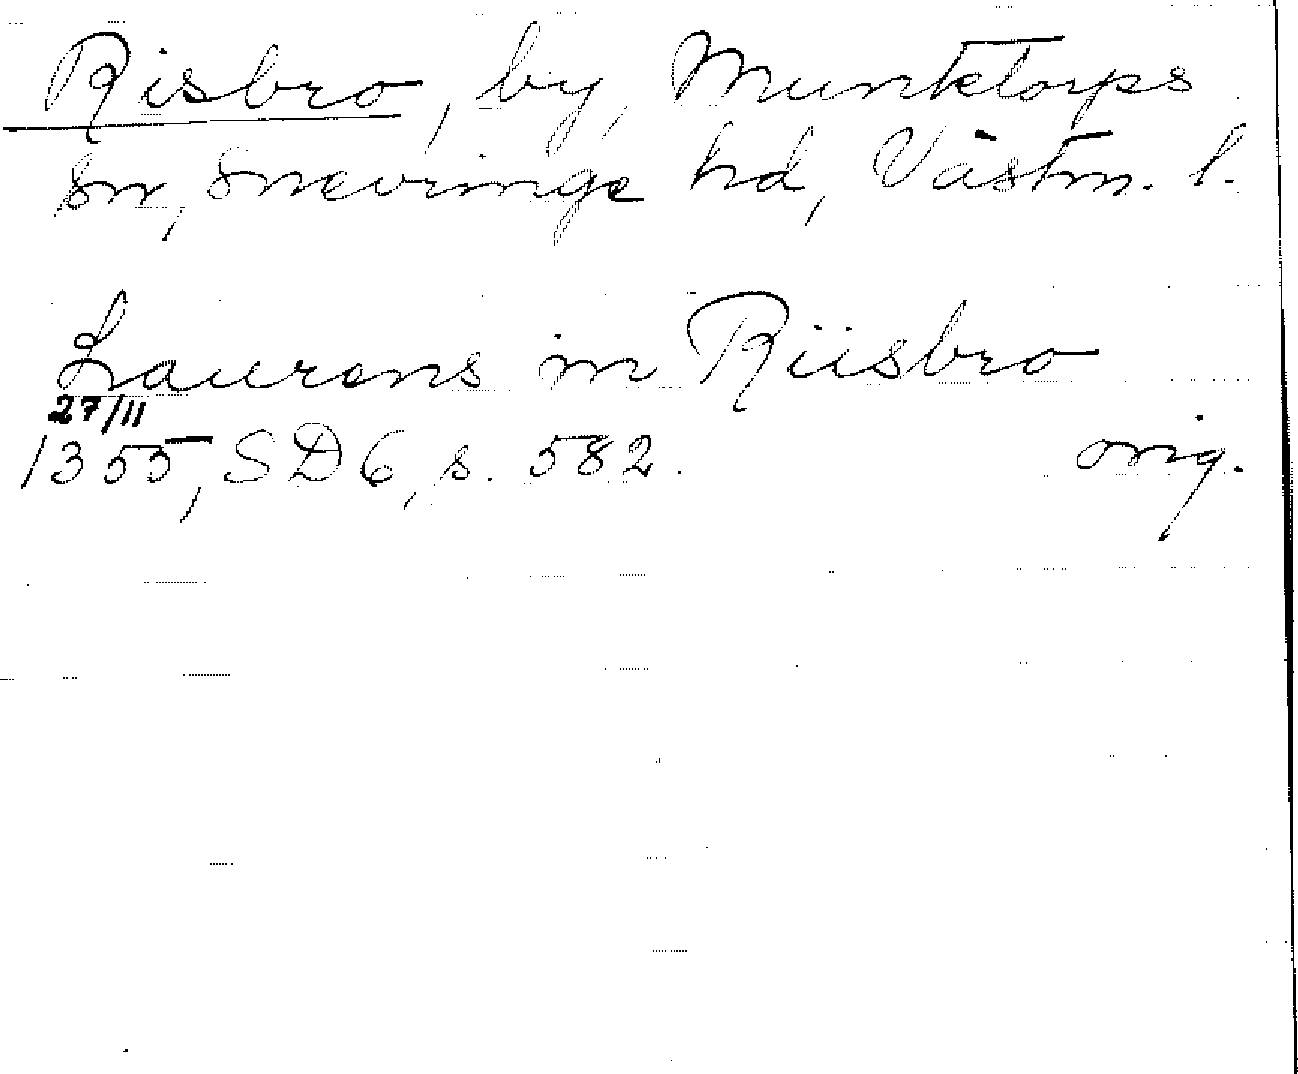 Risbro, by, Munktorps
sn, Snevringe hd, Västm. l.
Laurens in Riisbro
27/11
1355, SD 6, s. 582. orig.